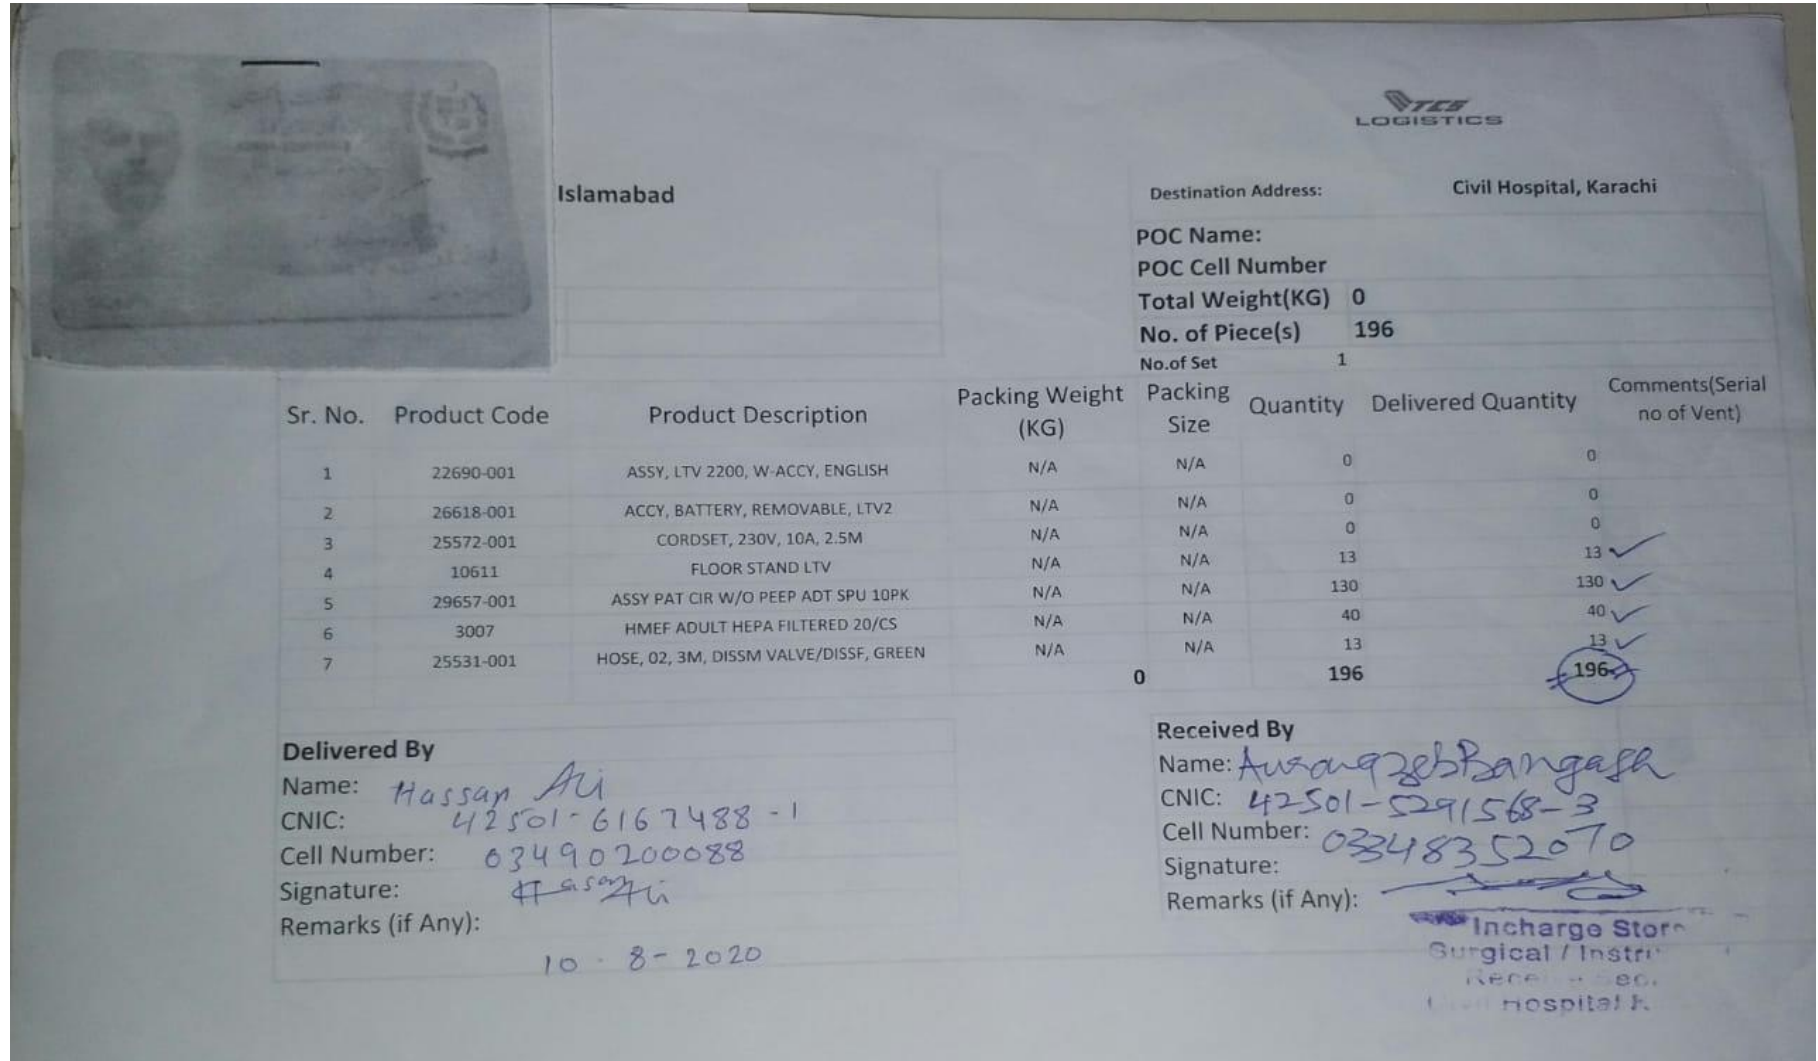 TCS
LOGISTICS
Islamabad
Destination Address: Civil Hospital, Karachi
POC Name:
POC Cell Number
Total Weight(KG) 0
No. of Piece(s) 196
No.of Set 1
Sr. No. Product Code Product Description Packing Weight (KG) Packing Size Quantity Delivered Quantity Comments(Serial no of Vent)
1 22690-001 ASSY, LTV 2200, W-ACCY, ENGLISH N/A N/A 0 0
2 26618-001 ACCY, BATTERY, REMOVABLE, LTV2 N/A N/A 0 0
3 25572-001 CORDSET, 230V, 10A, 2.5M N/A N/A 0 0
4 10611 FLOOR STAND LTV N/A N/A 13 13
5 29657-001 ASSY PAT CIR W/O PEEP ADT SPU 10PK N/A N/A 130 130
6 3007 HMEF ADULT HEPA FILTERED 20/CS N/A N/A 40 40
7 25531-001 HOSE, 02, 3M, DISSM VALVE/DISSF, GREEN N/A N/A 13 13
0 196 196
Delivered By
Name: Hassan Ali
CNIC: 42501-6167488-1
Cell Number: 03490200088
Signature: Hasan Ali
Remarks (if Any):
10-8-2020
Received By
Name: Aurangzeb Bangash
CNIC: 42501-5291568-3
Cell Number: 03348352070
Signature:
Remarks (if Any):
Incharge Store
Surgical / Instr
Hospital K